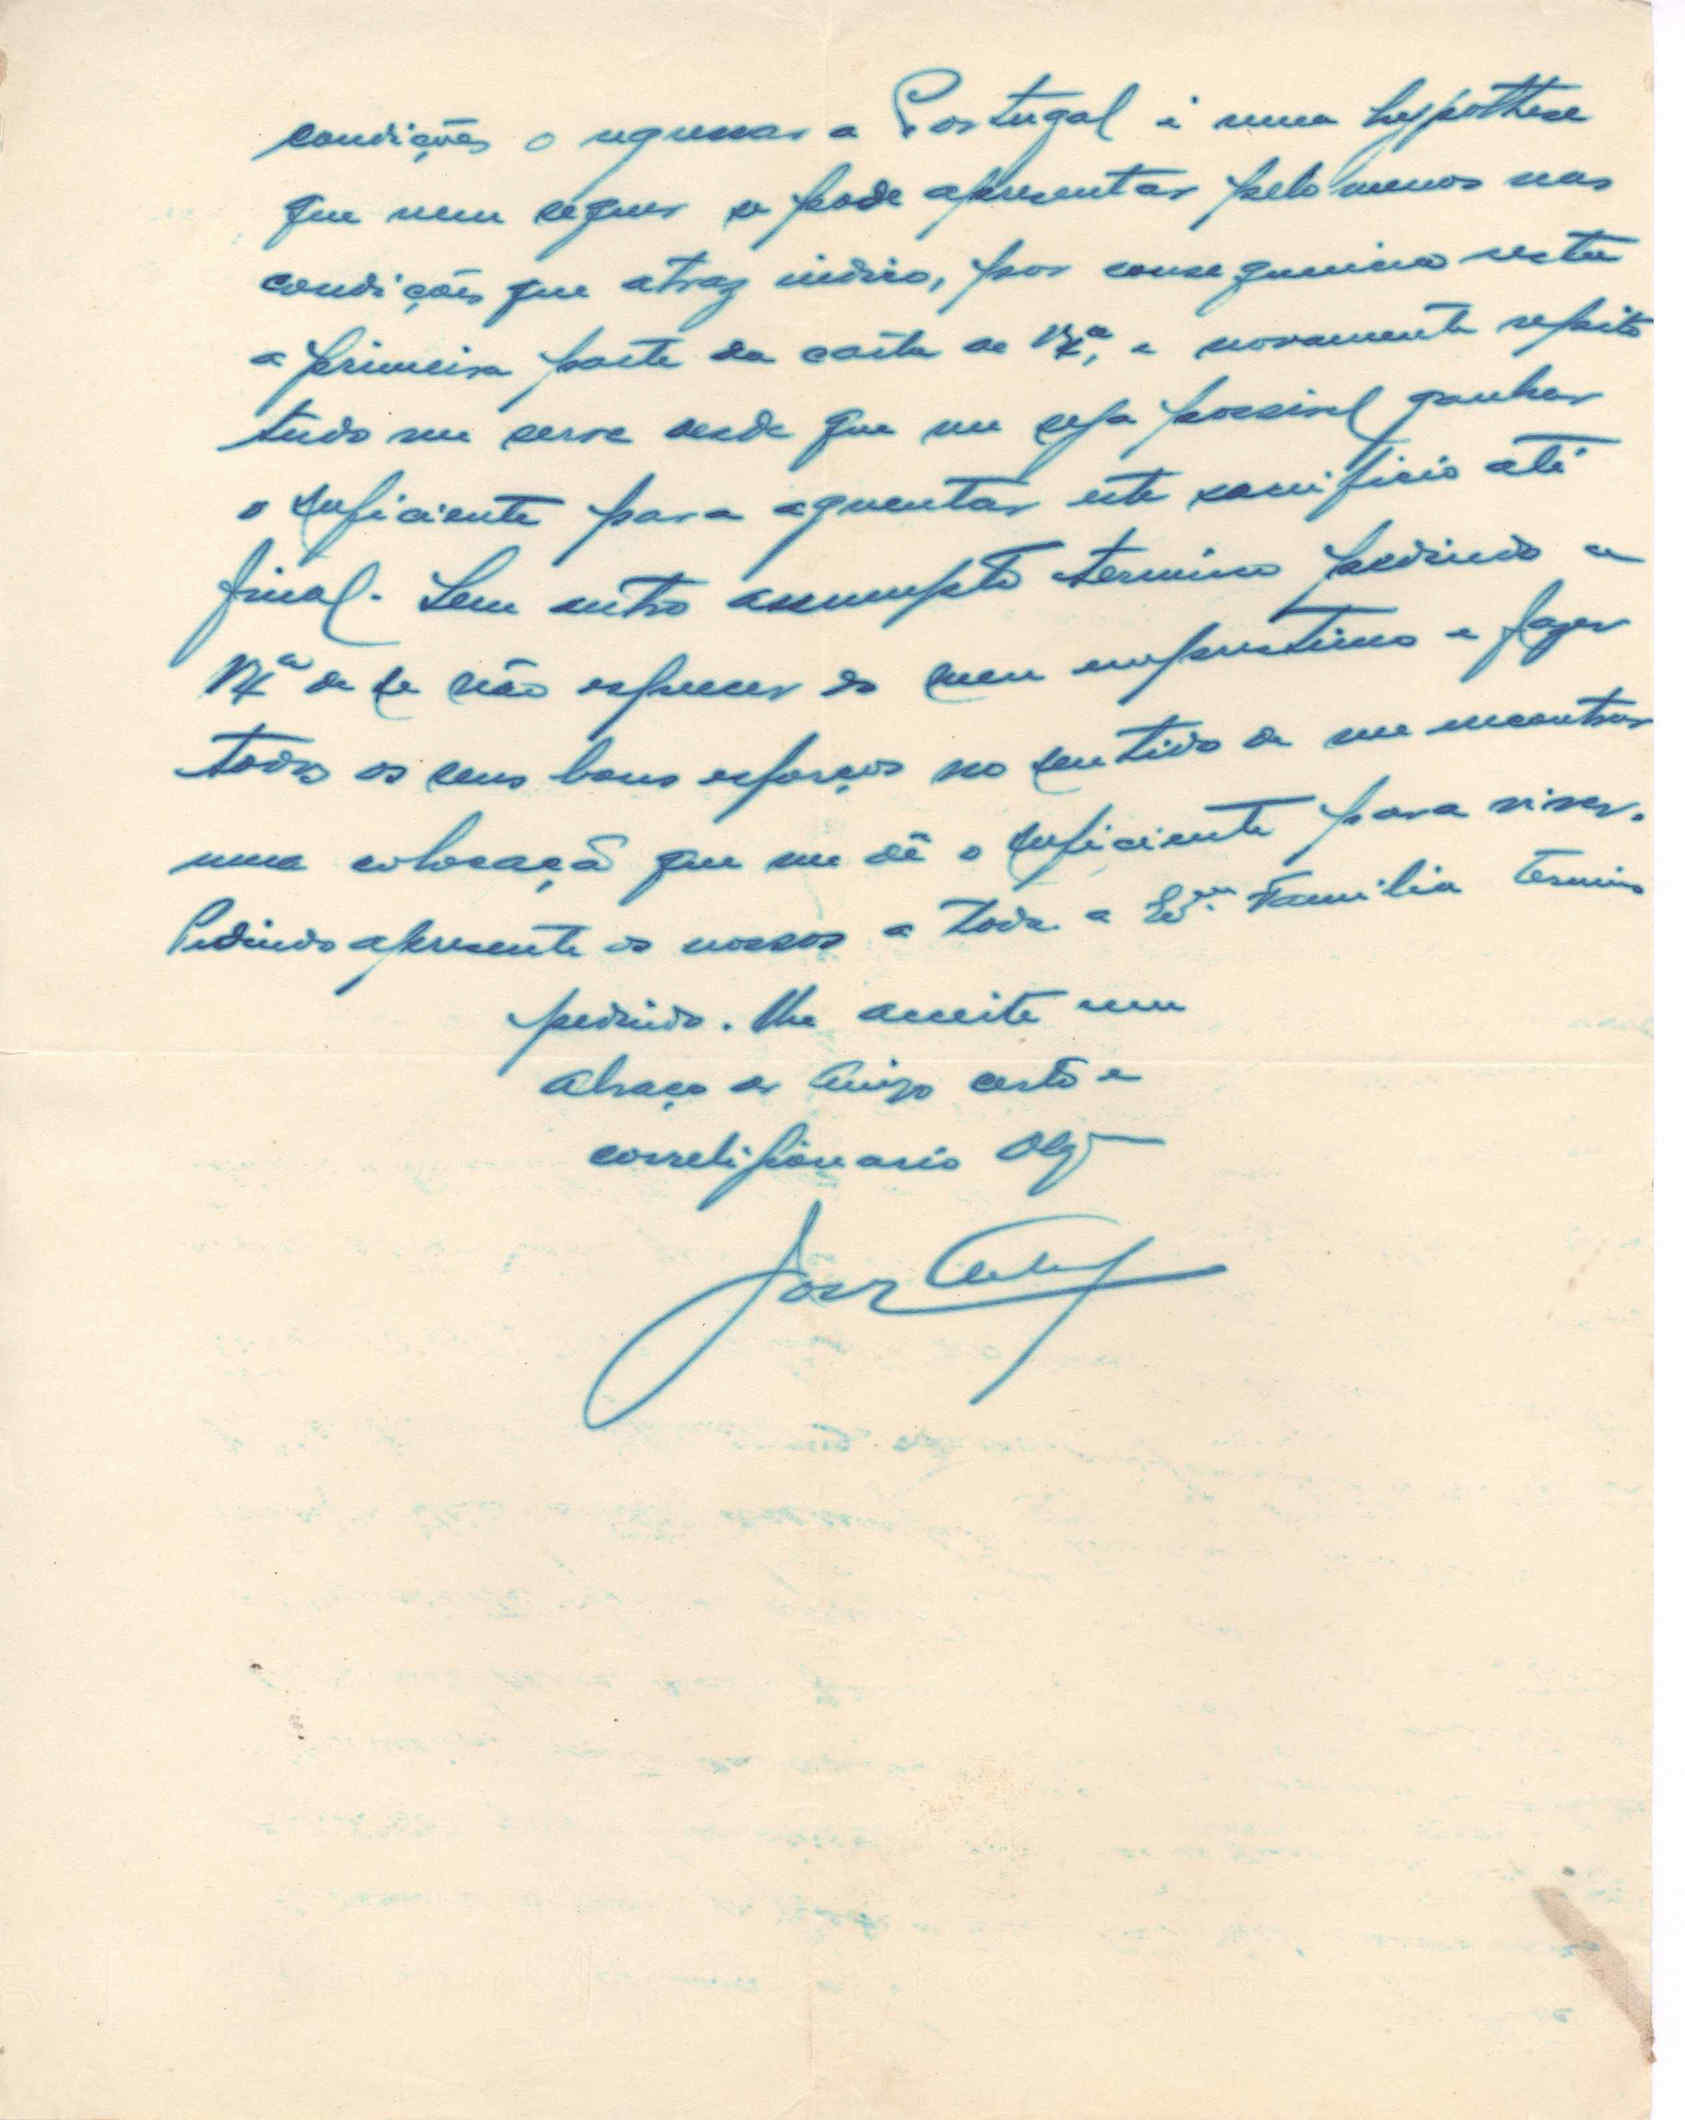 condições o regressar a Portugal é uma hypothese
que nem sequer se pode apresentar pelo menos nas
condições que atraz indico, por conseguinte resta
a primeira parte da carta de V.ª, e novamente repito
tudo me serve desde que me seja possivel ganhar
o suficiente para aguentar este sacrificio até
final. Sem outro assumpto termino pedindo a
V.ª de se não esquecer do meu emprestimo e fazer
todos os seus bons esforços no sentido de me encontrar
uma colocaçã que me dê o suficiente para viver.
Pedindo apresente os nossos a toda a Ex.ma Familia termino
pedindo-lhe aceite um
abraço do Amigo certo e
correligionario Obg
José